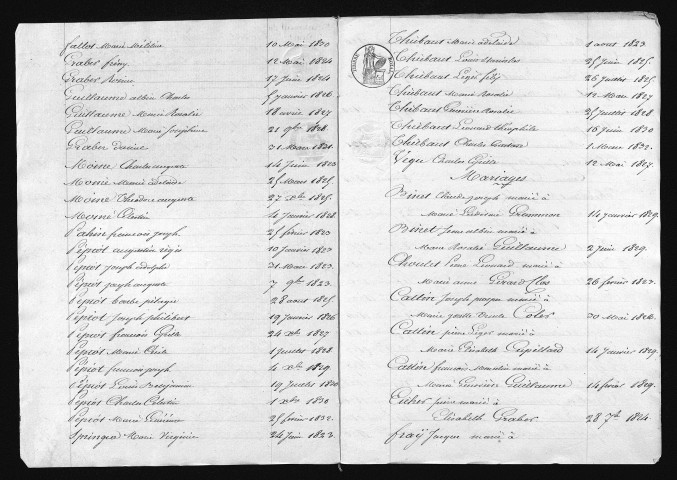 fallot Marie Mélitine 10 Mai 1830
Graber fanny 12 Mai 1824
Graber Rosine 17 Juin 1824
Guillaume albin Charles 5 janvier 1826
Guillaume Marie Rosalie 18 avril 1827
Guillaume Marie Joséphine 21 9bre 1828
Graber 31 Mars 1831
Moine Charles auguste 14 Juin 1823
Moine Marie adelaide 25 Mars 1825
Moine Théodore auguste 27 Xbre 1825
Moine Célestin 4 Janvier 1828
Pahin francois joseph 25 février 1823
Pépiot augustin régis 10 Janvier 1823
Pépiot joseph adolphe 31 Mars 1823
Pépiot joseph auguste 7 9bre 1823
Pépiot 28 aout 1825
Pépiot Joseph philibert 19 Janvier 1826
Pépiot francois 24 Xbre 1827
Pépiot Marie 1 Juillet 1828
Pépiot francois joseph 4 Xbre 1829
Pépiot Louis Benjamin 19 Juillet 1830
Pépiot Charles Célestin 1 Xbre 1830
Pépiot Marie 25 février 1832
Marie Virginie 24 Juin 1823
Thiébaut Marie adelaide 1 aout 1823
Thiébaut Louis 25 Juin 1825
Thiébaut Léger 26 Juillet 1825
Thiébaut Marie Rosalie 12 Mars 1827
Thiébaut Rosalie 25 Juillet 1828
Thiébaut Léonard théophile 16 Juin 1830
Thiébaut Charles Gustave 1 Mars 1832
Charles 12 Mai 1827
Mariages
Binet Claude joseph marié à
Marie 14 janvier 1829
Binet albin marié à
Marie Rosalie Guillaume 2 Juin 1829
Choulet Léonard marié à
Marie anne Girardclos 26 février 1823
Cattin Joseph marié à
Marie 30 Mai 1826
Cattin pierre Léger marié à
Marie Elisabeth 14 Janvier 1829
Cattin francois marié à
Marie Guillaume 14 février 1829
Eicher pierre marié à
Elisabeth Graber 28 7bre 1824
fray Jacques marié à